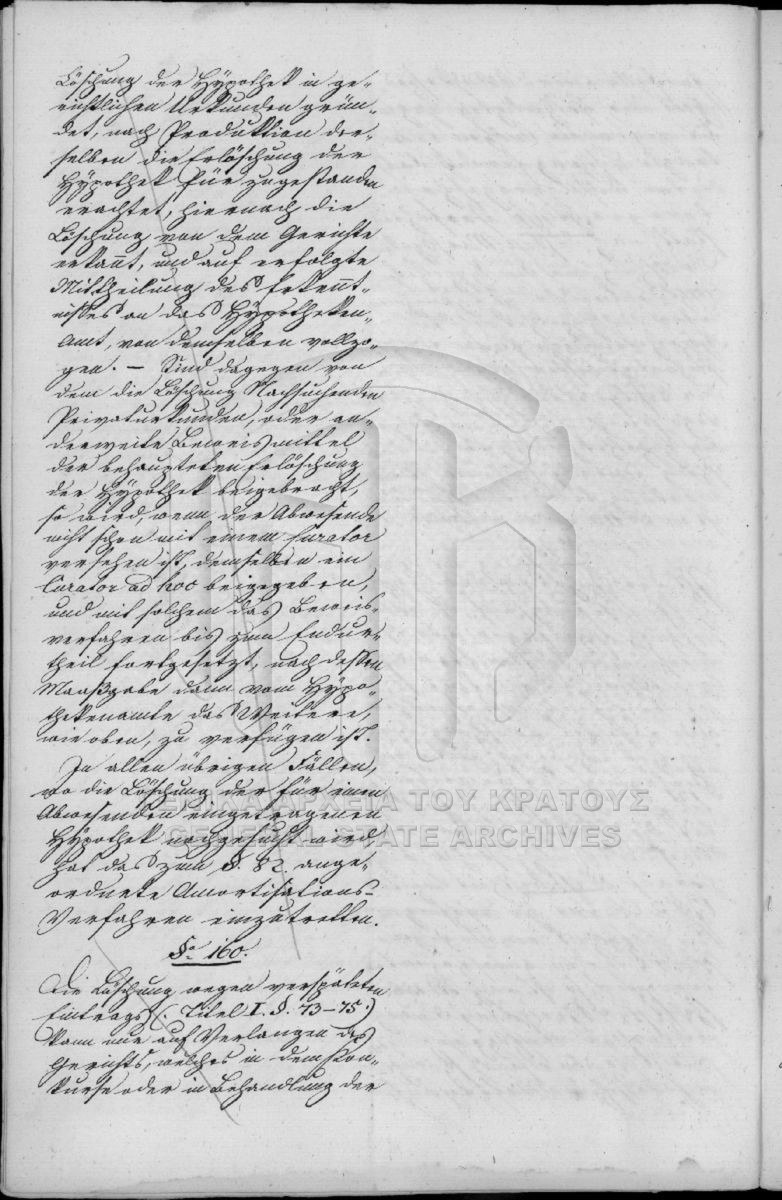 Löschung der Hypothek in ge-
richtlichen Urkunden grün-
det, nach Produktion der-
selben die Erlöschung der
Hypothek für zugestanden
erachtet, hiernach die
Löschung von dem Gerichte
erkannt, und auf erfolgte
Mittheilung des Erkennt-
nisses an das Hypotheken-
Amt, von demselben vollzo-
gen. — Sind dagegen von
dem die Löschung Nachsuchenden
Privaturkunden, oder an-
derweite Beweismittel
der behaupteten Erlöschung
der Hypothek beigebracht,
so wird, wenn der Abwesende
nicht schon mit einem Curator
versehen ist, demselben ein
Curator ad hoc beigegeben,
und mit solchem das Beweis-
verfahren bis zum Endur-
theil fortgesetzt, nach dessen
Maaßgabe dann vom Hypo-
thekenamte das Weitere,
wie oben, zu verfügen ist.
In allen übrigen Fällen,
wo die Löschung der für einen
Abwesenden eingetragenen
Hypothek nachgesucht wird,
hat das zum §. 82. ange-
ordnete Amortisations-
Verfahren einzutretten.
§. 160.
Die Löschung wegen verspäteten
Eintrags (. Titel I. §. 73-75.)
kann nur auf Verlangen des
Gerichts, welches in dem Kon-
kurse oder in Behandlung der
ΓΕΝΙΚΑ ΑΡΧΕΙΑ ΤΟΥ ΚΡΑΤΟΥΣ
GENERAL STATE ARCHIVES